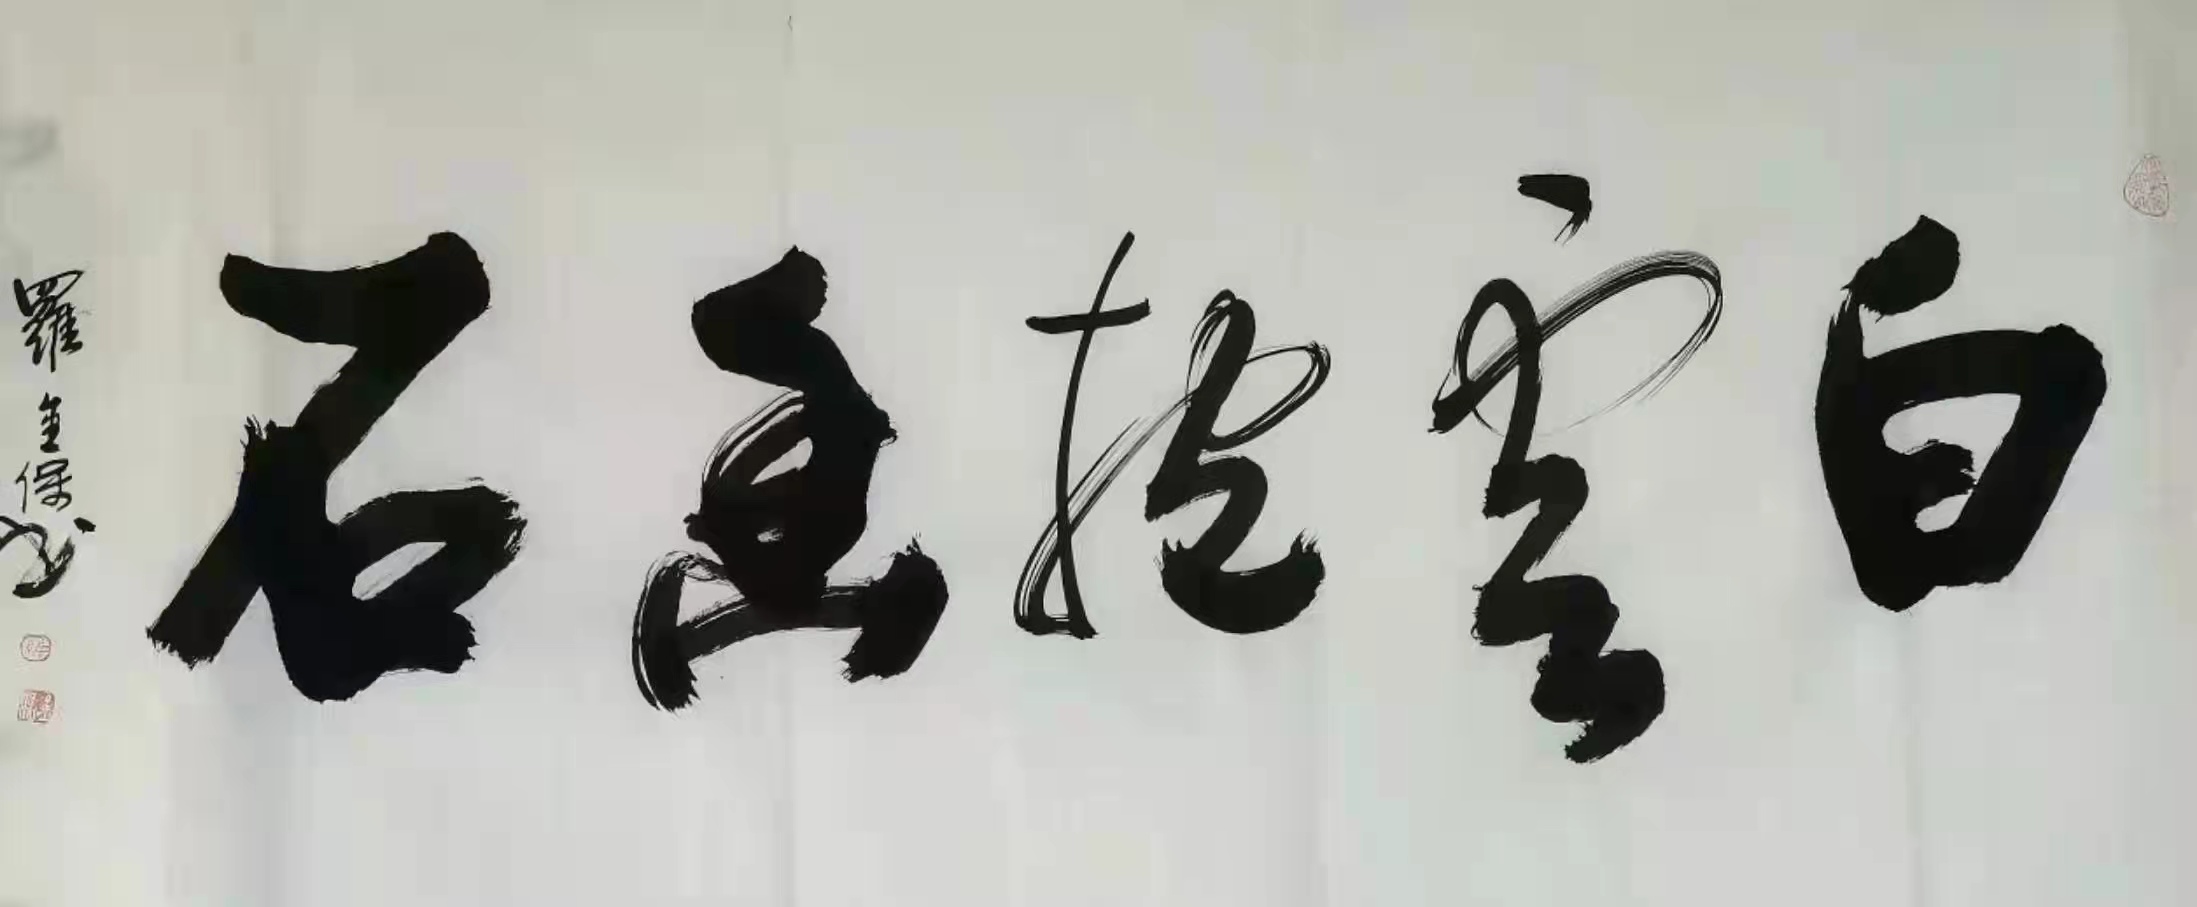 白雲抱幽石
羅金保书